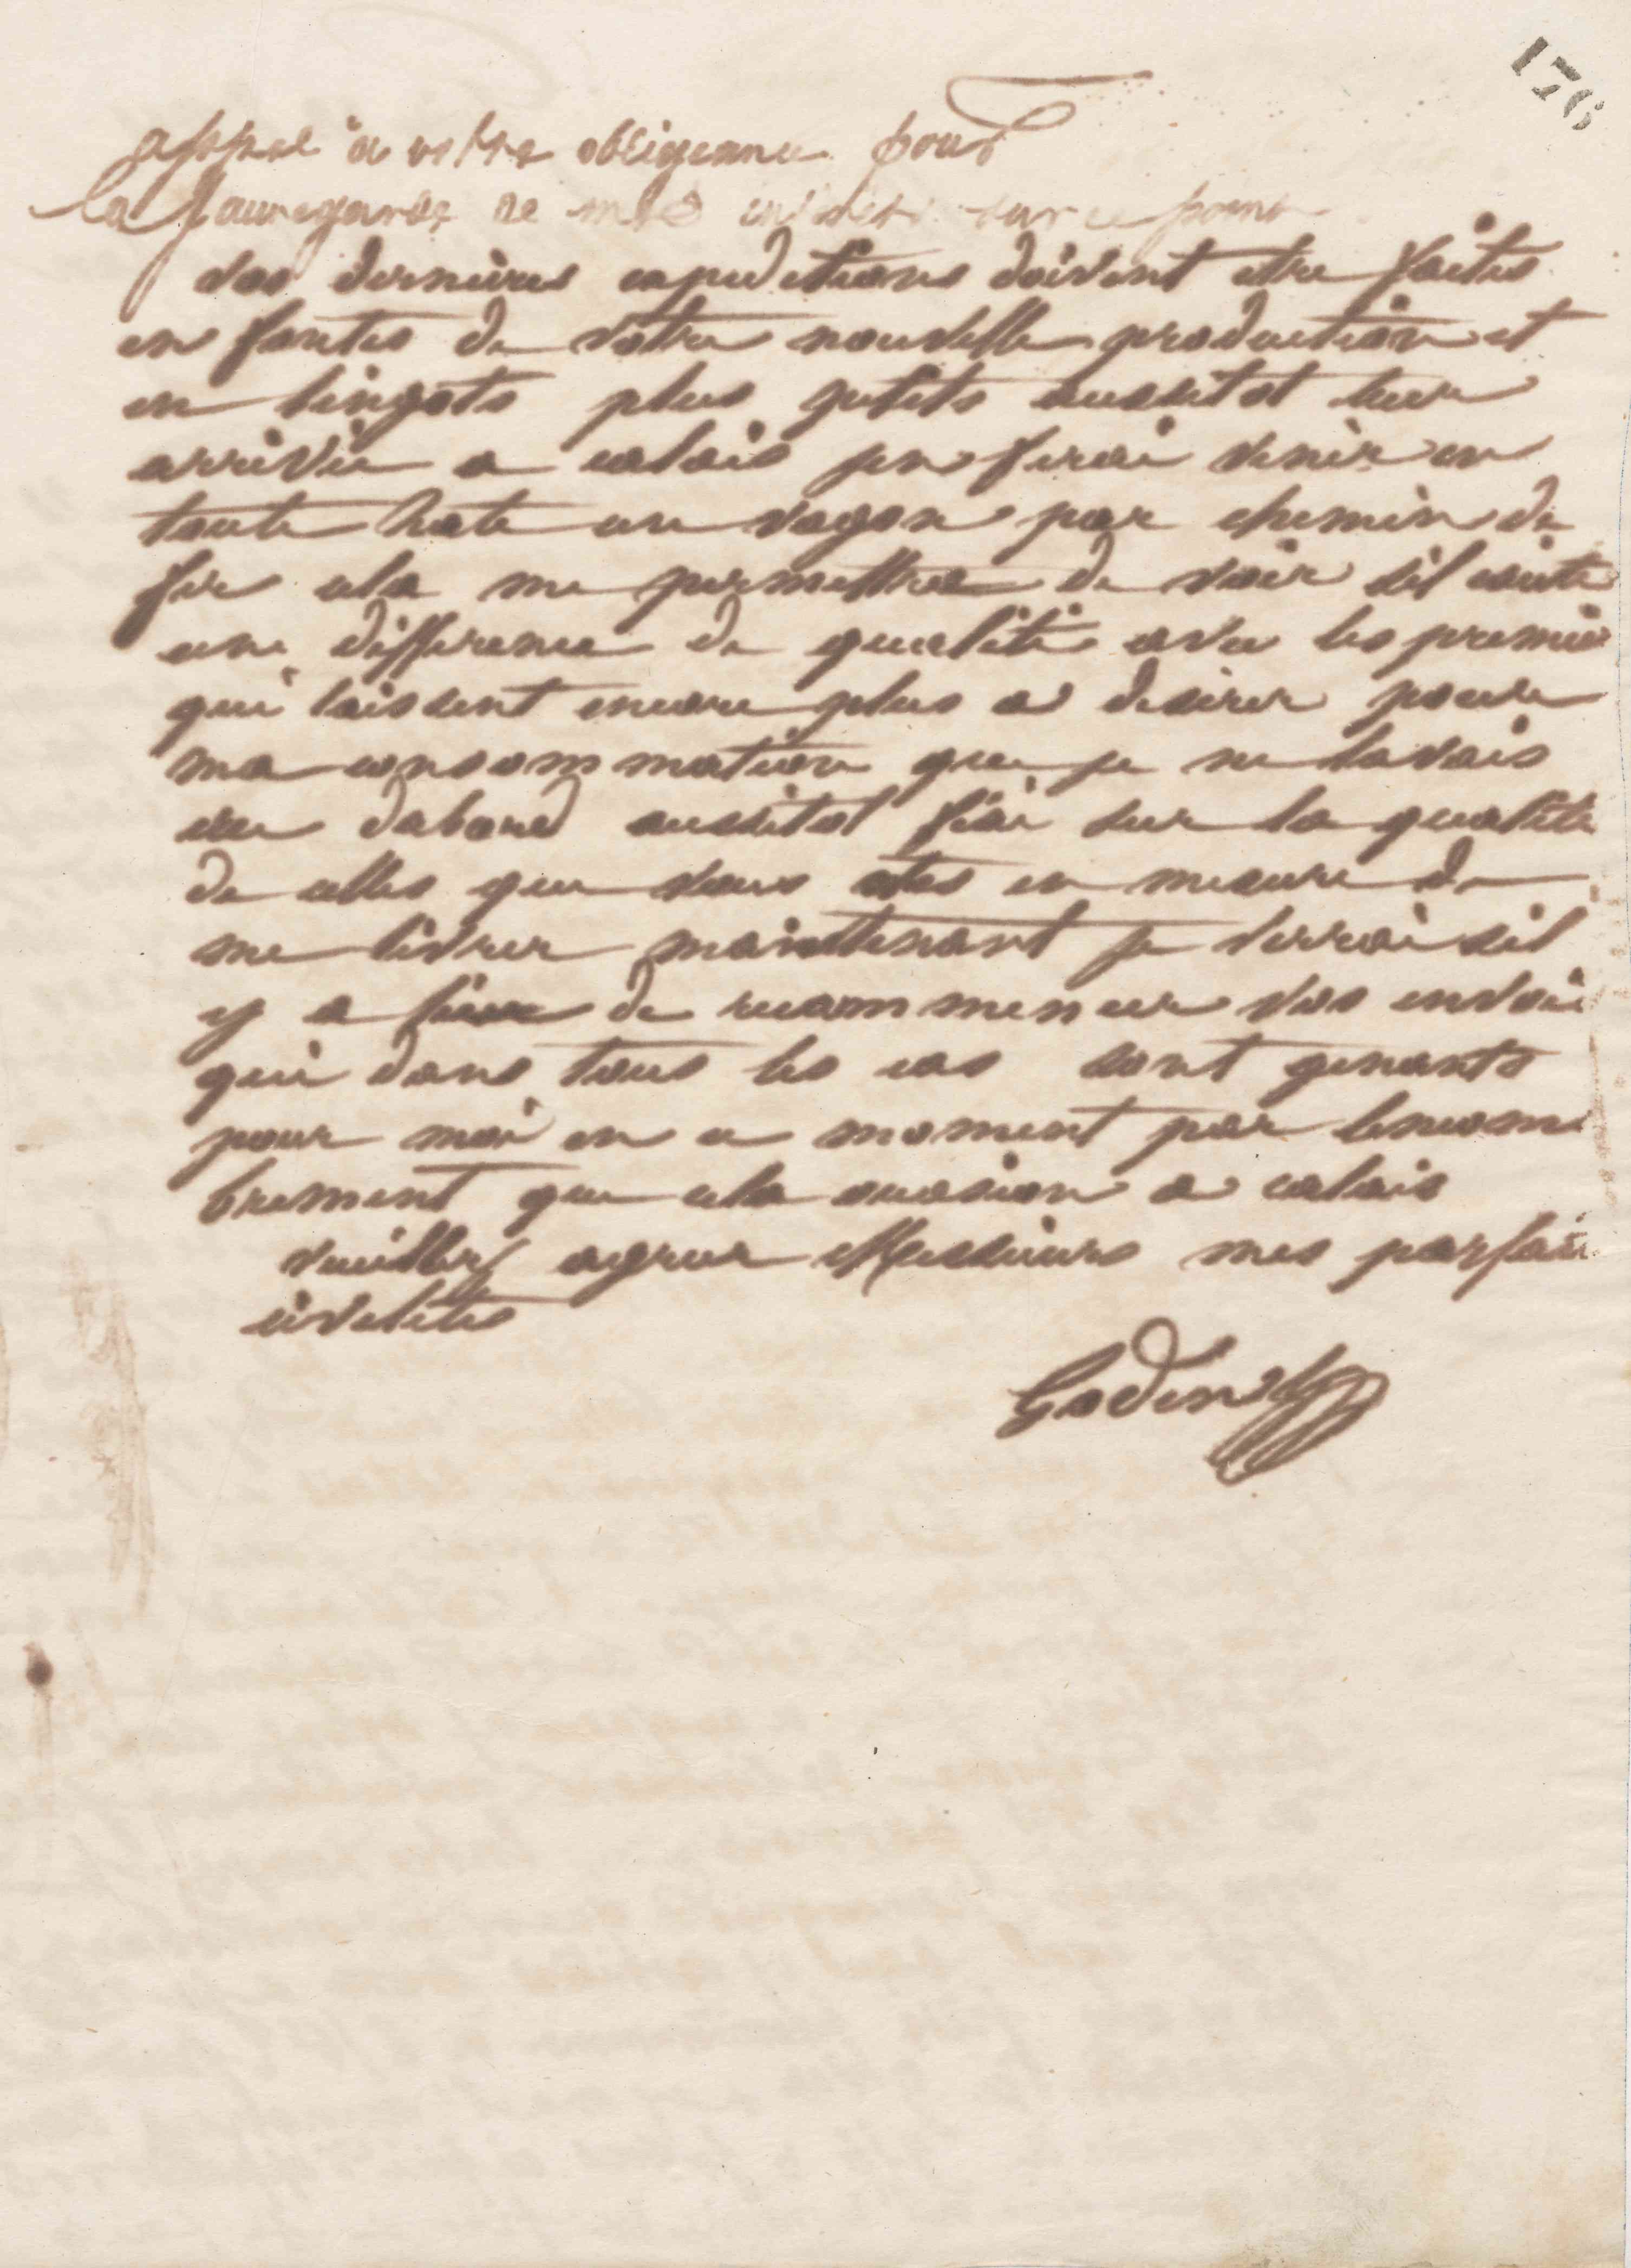 176
appel a votre obligeance pour
la sauvegarde de mes interets sur ce point
vos dernieres expeditions doivent etre faites
en fontes de votre nouvelle production et
en lingots plus petits aussitot leur
arrivée a calais jen ferai venir en
toute hate un vagon par chemin de
fer cela me permettra de voir sil existe
une difference de qualité avec les premie
qui laissent encore plus a desirer pour
ma consommation que je ne lavais
vu dabord aussitot fixé sur la qualité
de celles que vous etes en mesure de
me livrer maintenant je verrai sil
y a lieu de recommencer vos envoi
qui dans tous les cas sont genants
pour moi en ce moment par lencom
brement que cela occasione a calais
veuillez agreer Messieurs mes parfaite
civilites
Godin